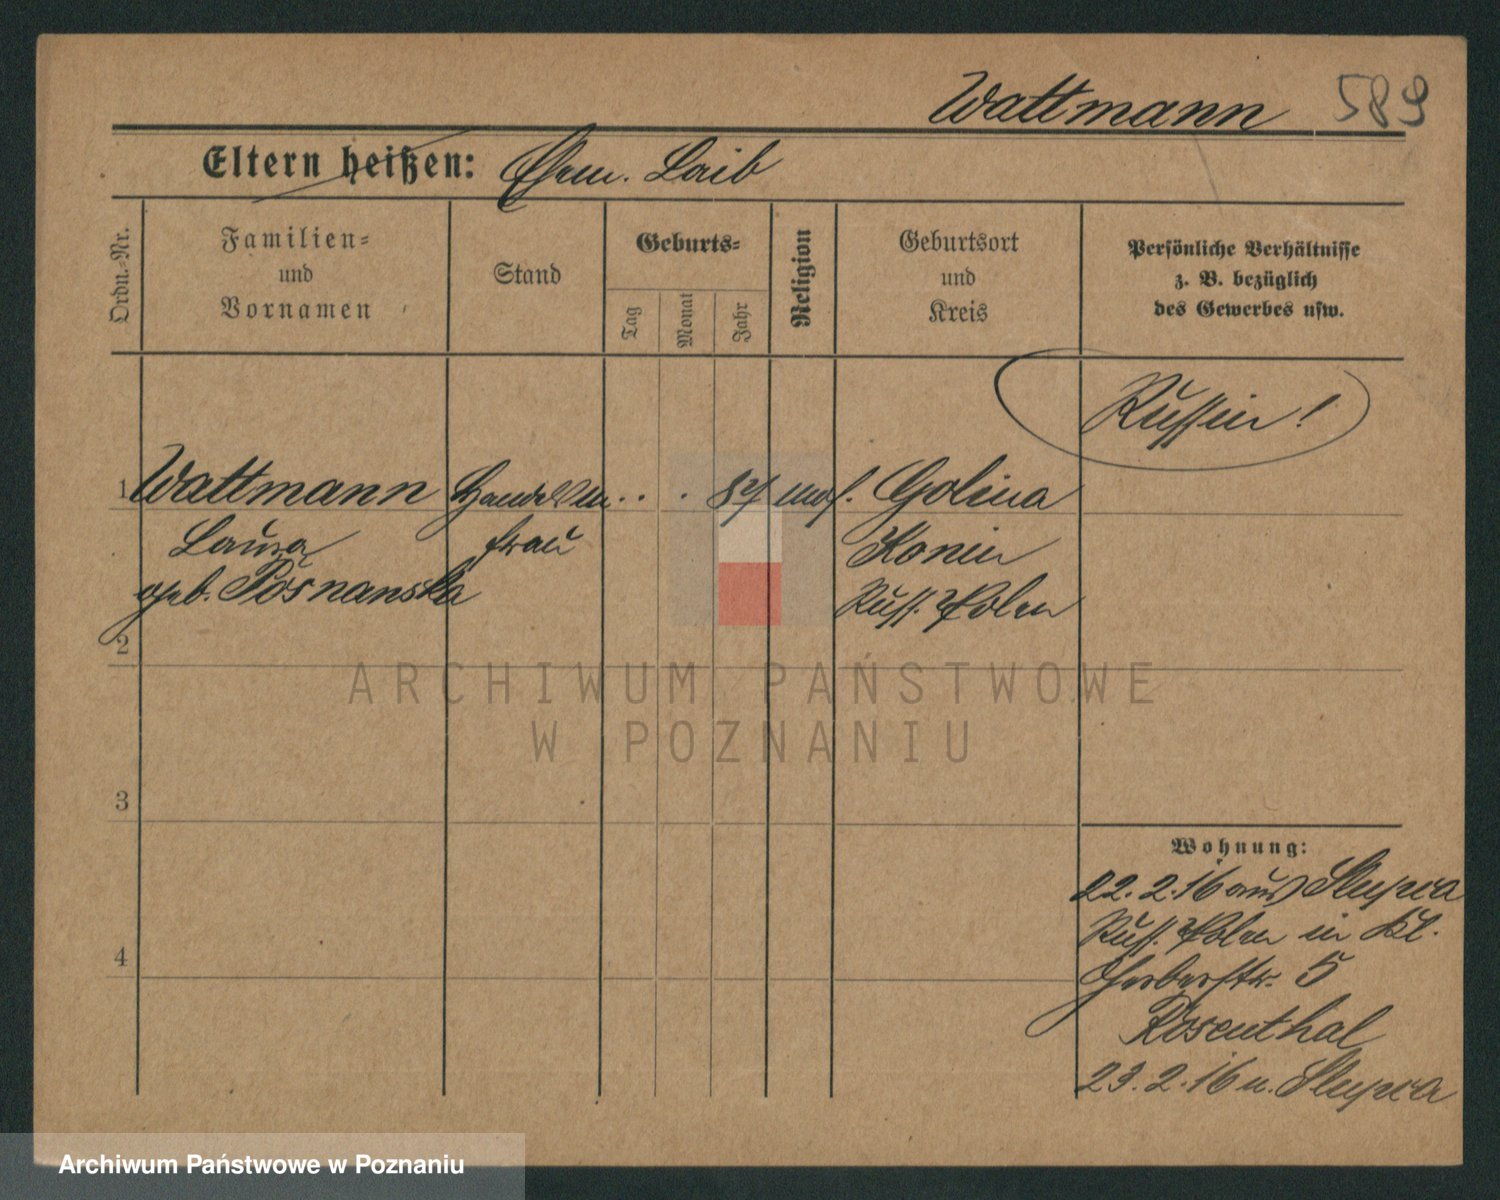 Wattmann 589
Eltern heißen: Ehem. Laib
Ordn.-Nr.
Familien-
und
Vornamen
Stand
Geburts-
Tag
Monat
Jahr
Religion
Geburtsort
und
Kreis
Persönliche Verhältnisse
z. B. bezüglich
des Gewerbes usw.
Russin!
1 Wattmann Handelsm. . . . 87 mos. Golina
Laura frau Konin
geb. Posnanska Russ. Polen
2
3
4
Wohnung:
22.2.16 aus Slupca
Russ. Polen in Kl.
Gerberstr. 5
Rosenthal
23.2.16 n. Slupca
ARCHIWUM PAŃSTWOWE
W POZNANIU
Archiwum Państwowe w Poznaniu